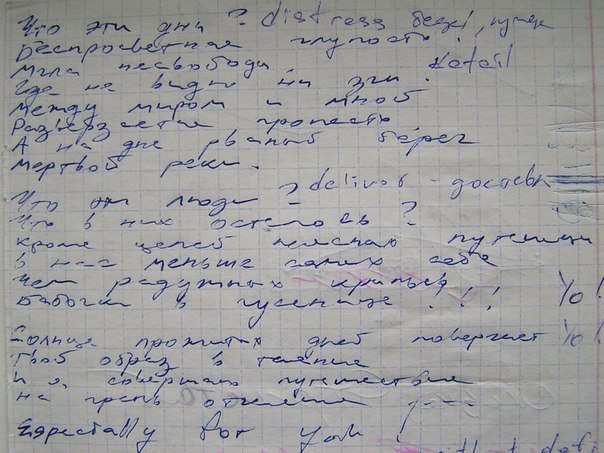 Что эти дни ? distress
Беспросветная глупость !
Мгла несвободы, detail
Где не видно ни зги.
Между миром и мной
Разверзается пропасть
А на дне рваный берег
Мертвой реки.
Что эти люди ? deliver -
Что в них осталось ?
Кроме цепей неясная путаница
В нас меньше самих себя
Чем радужных крыльев
Бабочки в гусенице !!! %!
Солнце прожитых дней повергает %!
Твой образ в
И я совершаю путешествие
На грань
Especially for you !